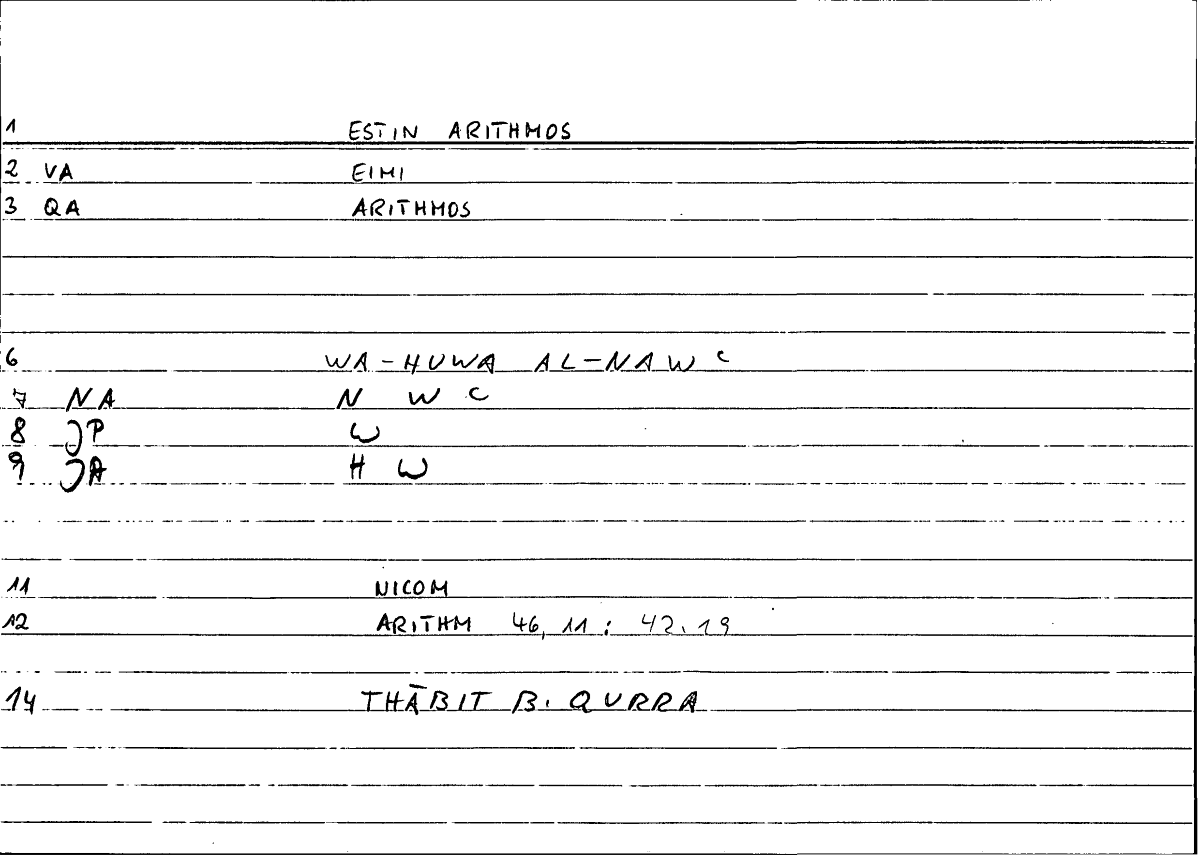 1 ESTIN ARITHMOS
2 VA EIMI
3 QA ARITHMOS
6 WA-HUWA AL-NAWC
7 NA N W C
8 JP W
9 JA H W
11 NICOM
12 ARITHM 46, 11 : 42.19
14 THĀBIT B. QURRA